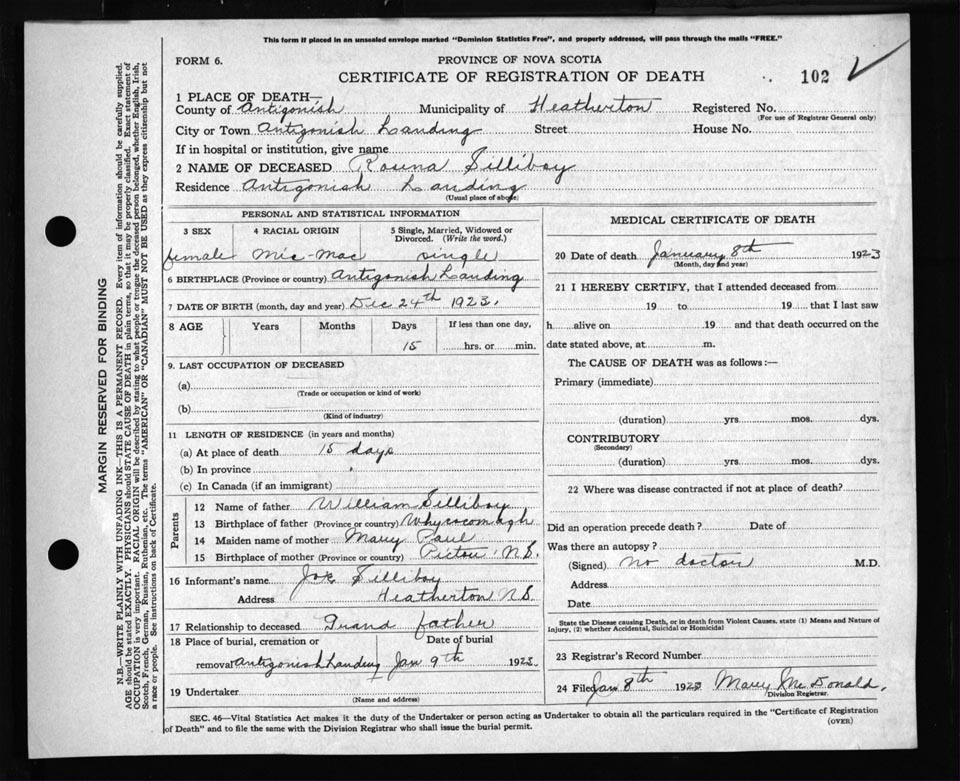 This form if placed in an unsealed envelope marked "Dominion Statistics Free", and properly addressed, will pass through the mails "FREE."
FORM 6.
PROVINCE OF NOVA SCOTIA
CERTIFICATE OF REGISTRATION OF DEATH
102
1 PLACE OF DEATH—
County of Antigonish Municipality of Heatherton Registered No.
(For use of Registrar General only)
City or Town Antigonish Landing Street House No.
If in hospital or institution, give name
2 NAME OF DECEASED Silliboy
Residence Antigonish Landing
(Usual place of abode)
PERSONAL AND STATISTICAL INFORMATION
3 SEX 4 RACIAL ORIGIN 5 Single, Married, Widowed or Divorced. (Write the word.)
female Mic-Mac single
6 BIRTHPLACE (Province or country) Antigonish Landing
7 DATE OF BIRTH (month, day and year) Dec 24th 1923.
8 AGE Years Months Days If less than one day,
15 hrs. or min.
9. LAST OCCUPATION OF DECEASED
(a)
(Trade or occupation or kind of work)
(b)
(Kind of industry)
11 LENGTH OF RESIDENCE (in years and months)
(a) At place of death 15 days
(b) In province "
(c) In Canada (if an immigrant)
Parents
12 Name of father William Silliboy
13 Birthplace of father (Province or country) Whycocomagh
14 Maiden name of mother Mary Paul
15 Birthplace of mother (Province or country) Pictou N.S.
16 Informant's name Joe Silliboy
Address Heatherton N.S.
17 Relationship to deceased Grand father
18 Place of burial, cremation or Date of burial
removal Antigonish Landing Jan 9th 1923.
19 Undertaker
(Name and address)
MEDICAL CERTIFICATE OF DEATH
20 Date of death January 8th 1923
(Month, day and year)
21 I HEREBY CERTIFY, that I attended deceased from
19 to 19 that I last saw
h alive on 19 and that death occurred on the
date stated above, at m.
The CAUSE OF DEATH was as follows:—
Primary (immediate)
(duration) yrs. mos. dys.
CONTRIBUTORY
(Secondary)
(duration) yrs. mos. dys.
22 Where was disease contracted if not at place of death?
Did an operation precede death? Date of
Was there an autopsy?
(Signed) no doctor M.D.
Address
Date
State the Disease causing Death, or in death from Violent Causes, state (1) Means and Nature of
Injury, (2) whether Accidental, Suicidal or Homicidal
23 Registrar's Record Number
24 Filed Jan 8th 1923 Mary McDonald.
Division Registrar.
SEC. 46—Vital Statistics Act makes it the duty of the Undertaker or person acting as Undertaker to obtain all the particulars required in the "Certificate of Registration
of Death" and to file the same with the Division Registrar who shall issue the burial permit.
(OVER)
MARGIN RESERVED FOR BINDING
N.B.—WRITE PLAINLY WITH UNFADING INK—THIS IS A PERMANENT RECORD. Every item of information should be carefully supplied.
AGE should be stated EXACTLY. PHYSICIANS should STATE CAUSE OF DEATH in plain terms, so that it may be properly classified. Exact statement of
OCCUPATION is very important. RACIAL ORIGIN will be described by stating to what people or tongue the deceased person belonged, whether English, Irish,
Scotch, French, German, Russian, Ruthenian, etc. The terms "AMERICAN" OR "CANADIAN" MUST NOT BE USED as they express citizenship but not
a race or people. See instructions on back of Certificate.